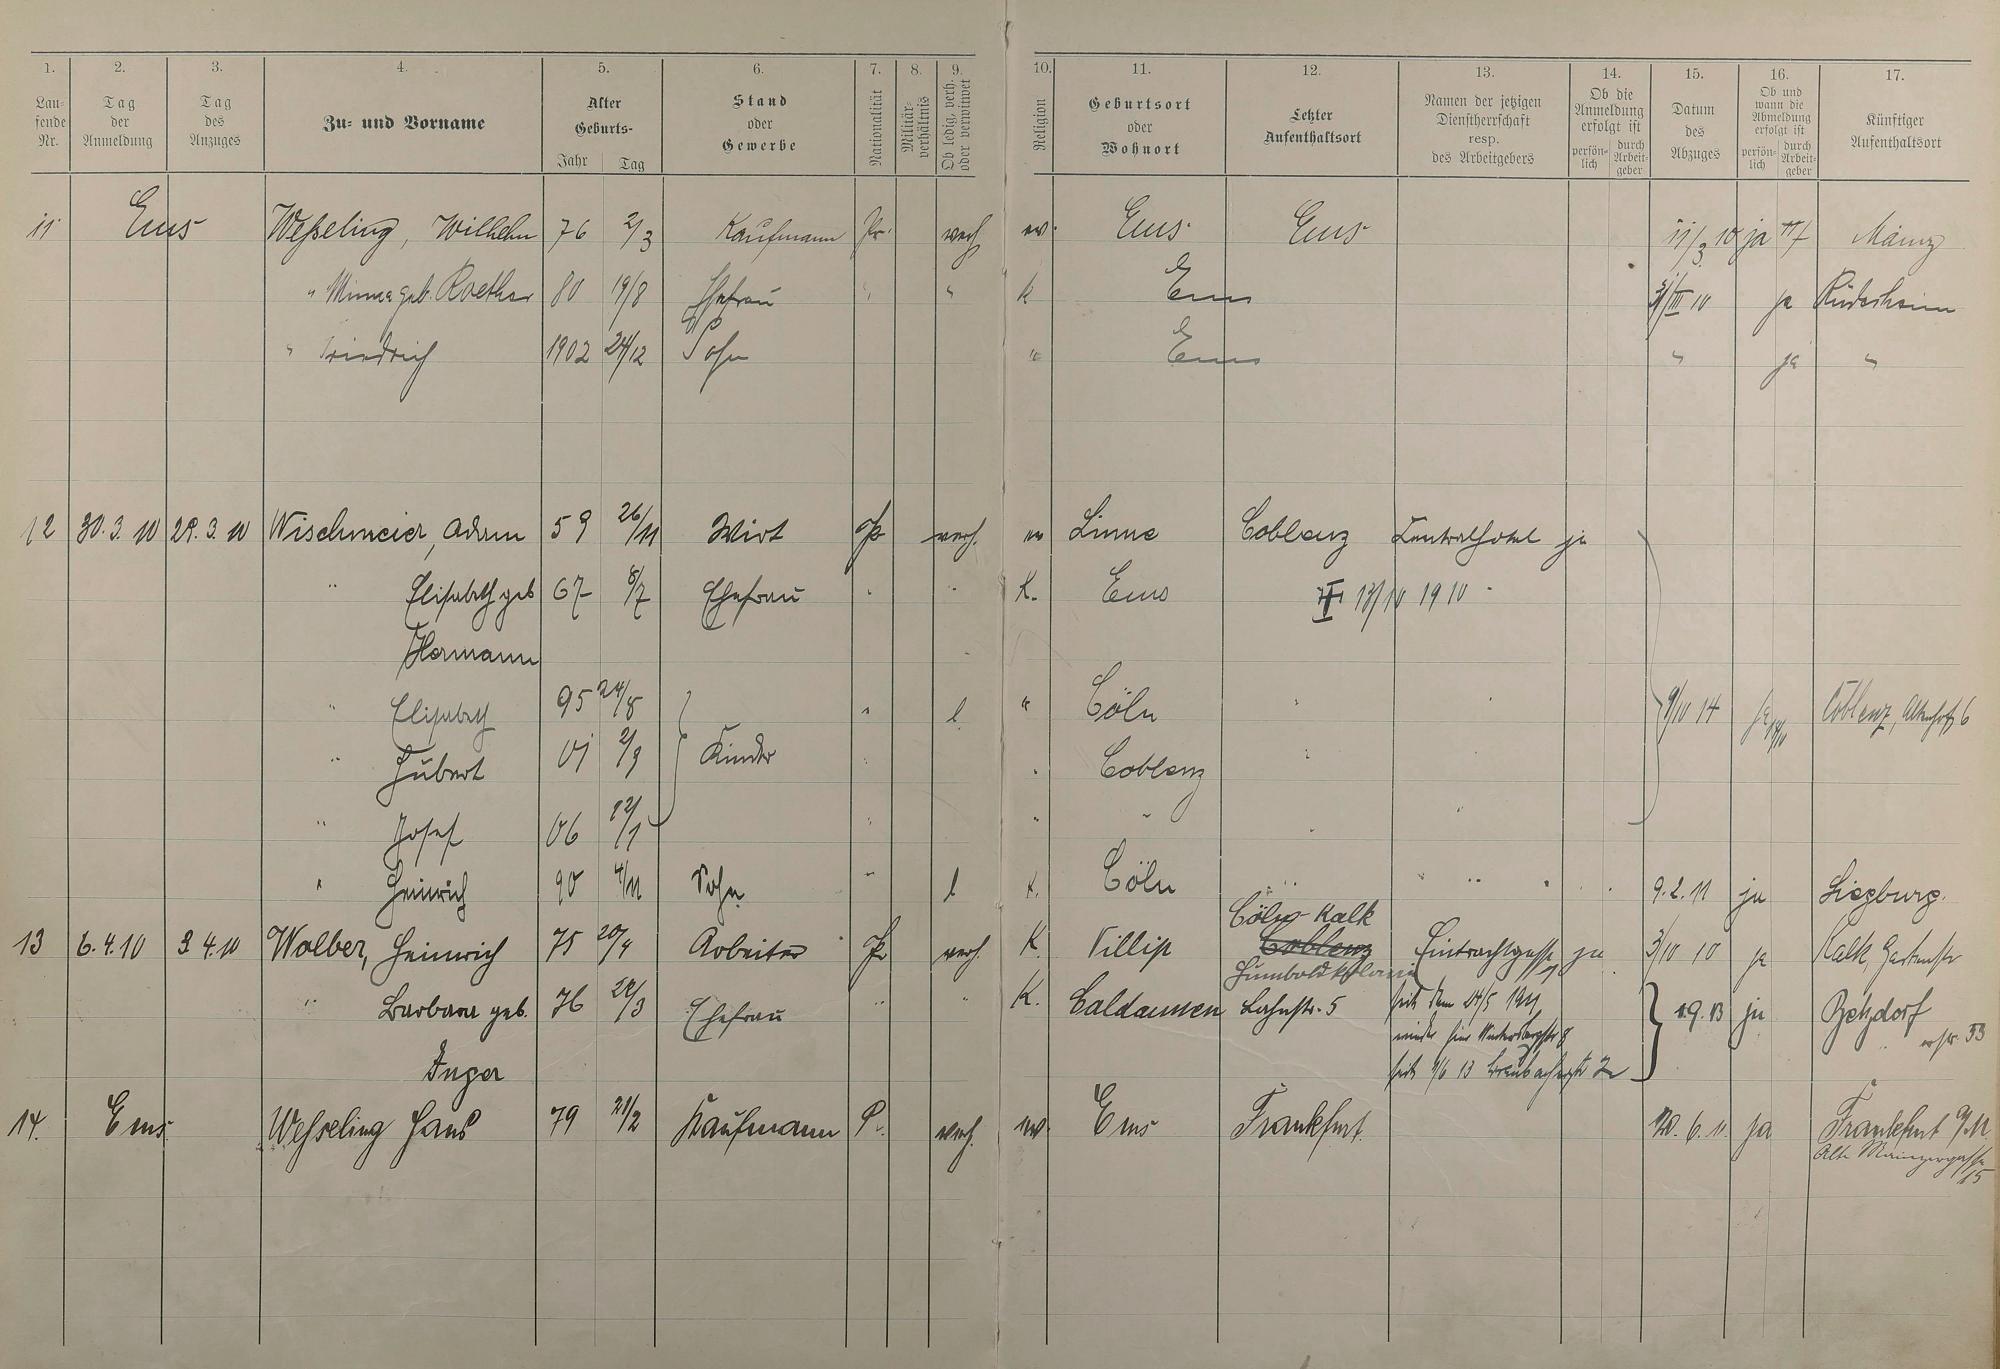 1. 2. 3. 4. 5. 6. 7. 8. 9. 10. 11. 12. 13. 14. 15. 16. 17.
Lau-
fende
Nr.
Tag
der
Anmeldung
Tag
des
Anzuges
Zu- und Vorname
Alter
Geburts-
Jahr Tag
Stand
oder
Gewerbe
Nationalität
Militär-
verhältnis
Ob ledig, verh.
oder verwitwet
Religion
Geburtsort
oder
Wohnort
Letzter
Aufenthaltsort
Namen der jetzigen
Dienstherrschaft
resp.
des Arbeitgebers
Ob die
Anmeldung
erfolgt ist
persön-
lich
durch
Arbeit-
geber
Datum
des
Abzuges
Ob und
wann die
Abmeldung
erfolgt ist
persön-
lich
durch
Arbeit-
geber
Künftiger
Aufenthaltsort
11 Ems Weßeling, Wilhelm 76 2/3 Kaufmann Pr. verh. ev. Ems Ems 11/3 10 ja Mainz
" Minna geb. Roether 80 19/8 Ehefrau " " k Ems 31/III 10 ja Rüdesheim
" Friedrich 1902 24/12 Sohn " Ems " ja "
12 30.3.10 29.3.10 Wischmeier, Adam 59 26/11 Wirt Pr verh. ev Linne Coblenz Zentralhotel ja
" Elisabeth geb 67 8/7 Ehefrau " " K. Ems 13/10 1910
Hermann
" Elisabeth 95 24/8 " l " Cöln " " 9/10 14 ja Coblenz, Altenhof 6
" Hubert 01 2/9 Kinder " " Coblenz "
" Josef 06 12/1 " " " " "
" Heinrich 90 4/11 Sohn " l K. Cöln " " 9.2.11 ja Siegburg.
Cöln Kalk
13 6.4.10 3.4.10 Wolber, Heinrich 75 20/4 Arbeiter Pr verh. K. Villip Coblenz Eintrachtgasse ja 3/10 10 ja Kalk, Gartenstr
Humboldkolonie
" Barbara geb. 76 22/3 Ehefrau " " K. Caldaunen Lahnstr. 5 seit dem 24/5 1911 1.9.13 ja Betzdorf
wieder hier 8
Inger seit 1/6 13
14. Ems Weßeling Hans 79 21/2 Kaufmann P. verh. ev. Ems Frankfurt 20.6.11. ja Frankfurt a/M
Alte Mainzergasse
15